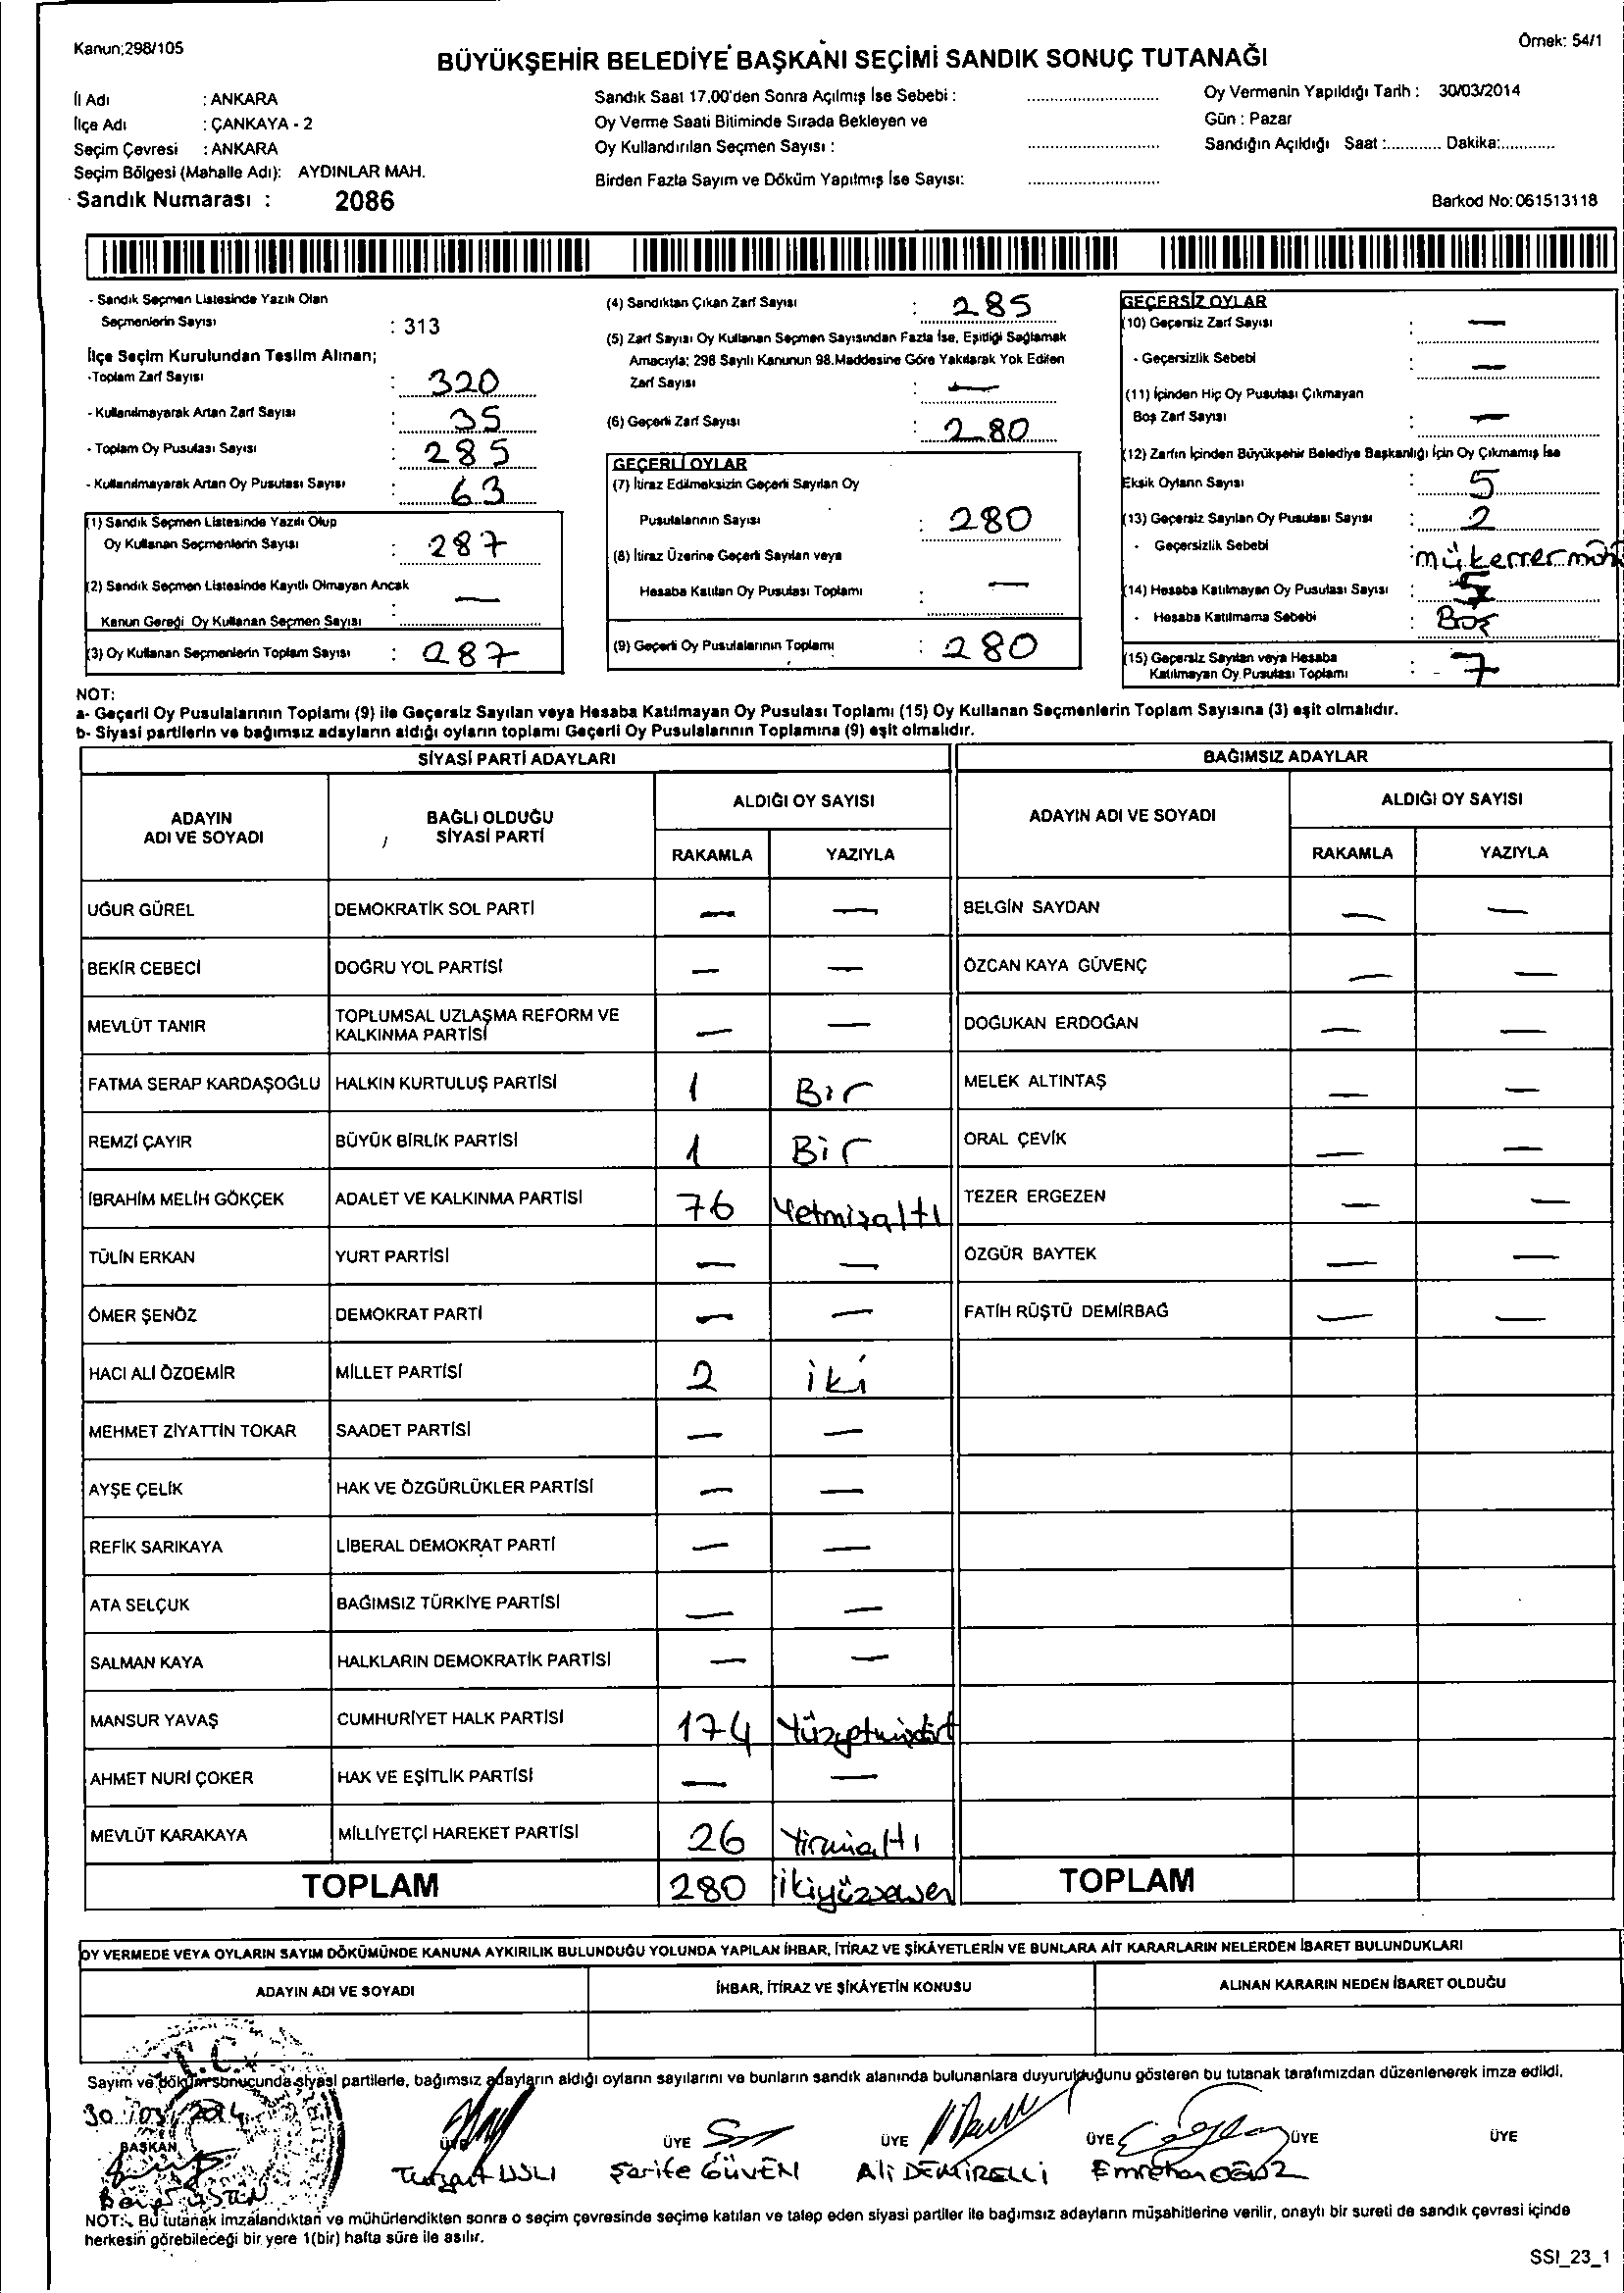 Kanun;298/105
Örnek: 54/1
BÜYÜKŞEHİR BELEDİYE BAŞKANI SEÇİMİ SANDIK SONUÇ TUTANAĞI
İl Adı : ANKARA
İlçe Adı : ÇANKAYA - 2
Seçim Çevresi : ANKARA
Seçim Bölgesi (Mahalle Adı): AYDINLAR MAH.
Sandık Numarası : 2086
Sandık Saat 17.00'den Sonra Açılmış İse Sebebi :
Oy Verme Saati Bitiminde Sırada Bekleyen ve
Oy Kullandırılan Seçmen Sayısı :
Birden Fazla Sayım ve Döküm Yapılmış İse Sayısı:
Oy Vermenin Yapıldığı Tarih : 30/03/2014
Gün : Pazar
Sandığın Açıldığı Saat :............ Dakika:............
Barkod No:061513118
- Sandık Seçmen Listesinde Yazılı Olan
Seçmenlerin Sayısı : 313
İlçe Seçim Kurulundan Teslim Alınan;
-Toplam Zarf Sayısı : 320
- Kullanılmayarak Artan Zarf Sayısı : 35
- Toplam Oy Pusulası Sayısı : 285
- Kullanılmayarak Artan Oy Pusulası Sayısı : 63
(1) Sandık Seçmen Listesinde Yazılı Olup
Oy Kullanan Seçmenlerin Sayısı : 287
(2) Sandık Seçmen Listesinde Kayıtlı Olmayan Ancak
Kanun Gereği Oy Kullanan Seçmen Sayısı : —
(3) Oy Kullanan Seçmenlerin Toplam Sayısı : 287
(4) Sandıktan Çıkan Zarf Sayısı : 285
(5) Zarf Sayısı Oy Kullanan Seçmen Sayısından Fazla İse, Eşitliği Sağlamak
Amacıyla; 298 Sayılı Kanunun 98.Maddesine Göre Yakılarak Yok Edilen
Zarf Sayısı : —
(6) Geçerli Zarf Sayısı : 280
GEÇERLİ OYLAR
(7) İtiraz Edilmeksizin Geçerli Sayılan Oy
Pusulalarının Sayısı : 280
(8) İtiraz Üzerine Geçerli Sayılan veya
Hesaba Katılan Oy Pusulası Toplamı : —
(9) Geçerli Oy Pusulalarının Toplamı : 280
GEÇERSİZ OYLAR
(10) Geçersiz Zarf Sayısı : —
- Geçersizlik Sebebi : —
(11) İçinden Hiç Oy Pusulası Çıkmayan
Boş Zarf Sayısı : —
(12) Zarfın İçinden Büyükşehir Belediye Başkanlığı İçin Oy Çıkmamış İse
Eksik Oyların Sayısı : 5
(13) Geçersiz Sayılan Oy Pusulası Sayısı : 2
- Geçersizlik Sebebi : mükerrer
(14) Hesaba Katılmayan Oy Pusulası Sayısı : 5
- Hesaba Katılmama Sebebi : Boş
(15) Geçersiz Sayılan veya Hesaba
Katılmayan Oy Pusulası Toplamı : 7
NOT:
a- Geçerli Oy Pusulalarının Toplamı (9) ile Geçersiz Sayılan veya Hesaba Katılmayan Oy Pusulası Toplamı (15) Oy Kullanan Seçmenlerin Toplam Sayısına (3) eşit olmalıdır.
b- Siyasi partilerin ve bağımsız adayların aldığı oyların toplamı Geçerli Oy Pusulalarının Toplamına (9) eşit olmalıdır.
SİYASİ PARTİ ADAYLARI
BAĞIMSIZ ADAYLAR
ADAYIN ADI VE SOYADI
BAĞLI OLDUĞU SİYASİ PARTİ
ALDIĞI OY SAYISI
RAKAMLA YAZIYLA
ADAYIN ADI VE SOYADI
ALDIĞI OY SAYISI
RAKAMLA YAZIYLA
UĞUR GÜREL DEMOKRATİK SOL PARTİ — — BELGİN SAYDAN — —
BEKİR CEBECİ DOĞRU YOL PARTİSİ — — ÖZCAN KAYA GÜVENÇ — —
MEVLÜT TANIR TOPLUMSAL UZLAŞMA REFORM VE KALKINMA PARTİSİ — — DOĞUKAN ERDOĞAN — —
FATMA SERAP KARDAŞOĞLU HALKIN KURTULUŞ PARTİSİ 1 Bir MELEK ALTINTAŞ — —
REMZİ ÇAYIR BÜYÜK BİRLİK PARTİSİ 1 Bir ORAL ÇEVİK — —
İBRAHİM MELİH GÖKÇEK ADALET VE KALKINMA PARTİSİ 76 Yetmişaltı TEZER ERGEZEN — —
TÜLİN ERKAN YURT PARTİSİ — — ÖZGÜR BAYTEK — —
ÖMER ŞENÖZ DEMOKRAT PARTİ — — FATİH RÜŞTÜ DEMİRBAĞ — —
HACI ALİ ÖZDEMİR MİLLET PARTİSİ 2 iki
MEHMET ZİYATTİN TOKAR SAADET PARTİSİ — —
AYŞE ÇELİK HAK VE ÖZGÜRLÜKLER PARTİSİ — —
REFİK SARIKAYA LİBERAL DEMOKRAT PARTİ — —
ATA SELÇUK BAĞIMSIZ TÜRKİYE PARTİSİ — —
SALMAN KAYA HALKLARIN DEMOKRATİK PARTİSİ — —
MANSUR YAVAŞ CUMHURİYET HALK PARTİSİ 174
AHMET NURİ ÇOKER HAK VE EŞİTLİK PARTİSİ — —
MEVLÜT KARAKAYA MİLLİYETÇİ HAREKET PARTİSİ 26 Yirmialtı
TOPLAM 280 ikiyüzseksen TOPLAM
OY VERMEDE VEYA OYLARIN SAYIM DÖKÜMÜNDE KANUNA AYKIRILIK BULUNDUĞU YOLUNDA YAPILAN İHBAR, İTİRAZ VE ŞİKÂYETLERİN VE BUNLARA AİT KARARLARIN NELERDEN İBARET BULUNDUKLARI
ADAYIN ADI VE SOYADI İHBAR, İTİRAZ VE ŞİKÂYETİN KONUSU ALINAN KARARIN NEDEN İBARET OLDUĞU
T.C.
Sayım ve döküm sonucunda siyasi partilerle, bağımsız adayların aldığı oyların sayılarını ve bunların sandık alanında bulunanlara duyurulduğunu gösteren bu tutanak tarafımızdan düzenlenerek imza edildi.
30/03/2014
BAŞKAN ÜYE ÜYE ÜYE ÜYE ÜYE ÜYE
ÜSTÜN Turgut USLU Şerife GÜVEN Ali DEMİRELLİ Emrehan OĞUZ
NOT: Bu tutanak imzalandıktan ve mühürlendikten sonra o seçim çevresinde seçime katılan ve talep eden siyasi partiler ile bağımsız adayların müşahitlerine verilir, onaylı bir sureti de sandık çevresi içinde
herkesin görebileceği bir yere 1(bir) hafta süre ile asılır.
SSI_23_1